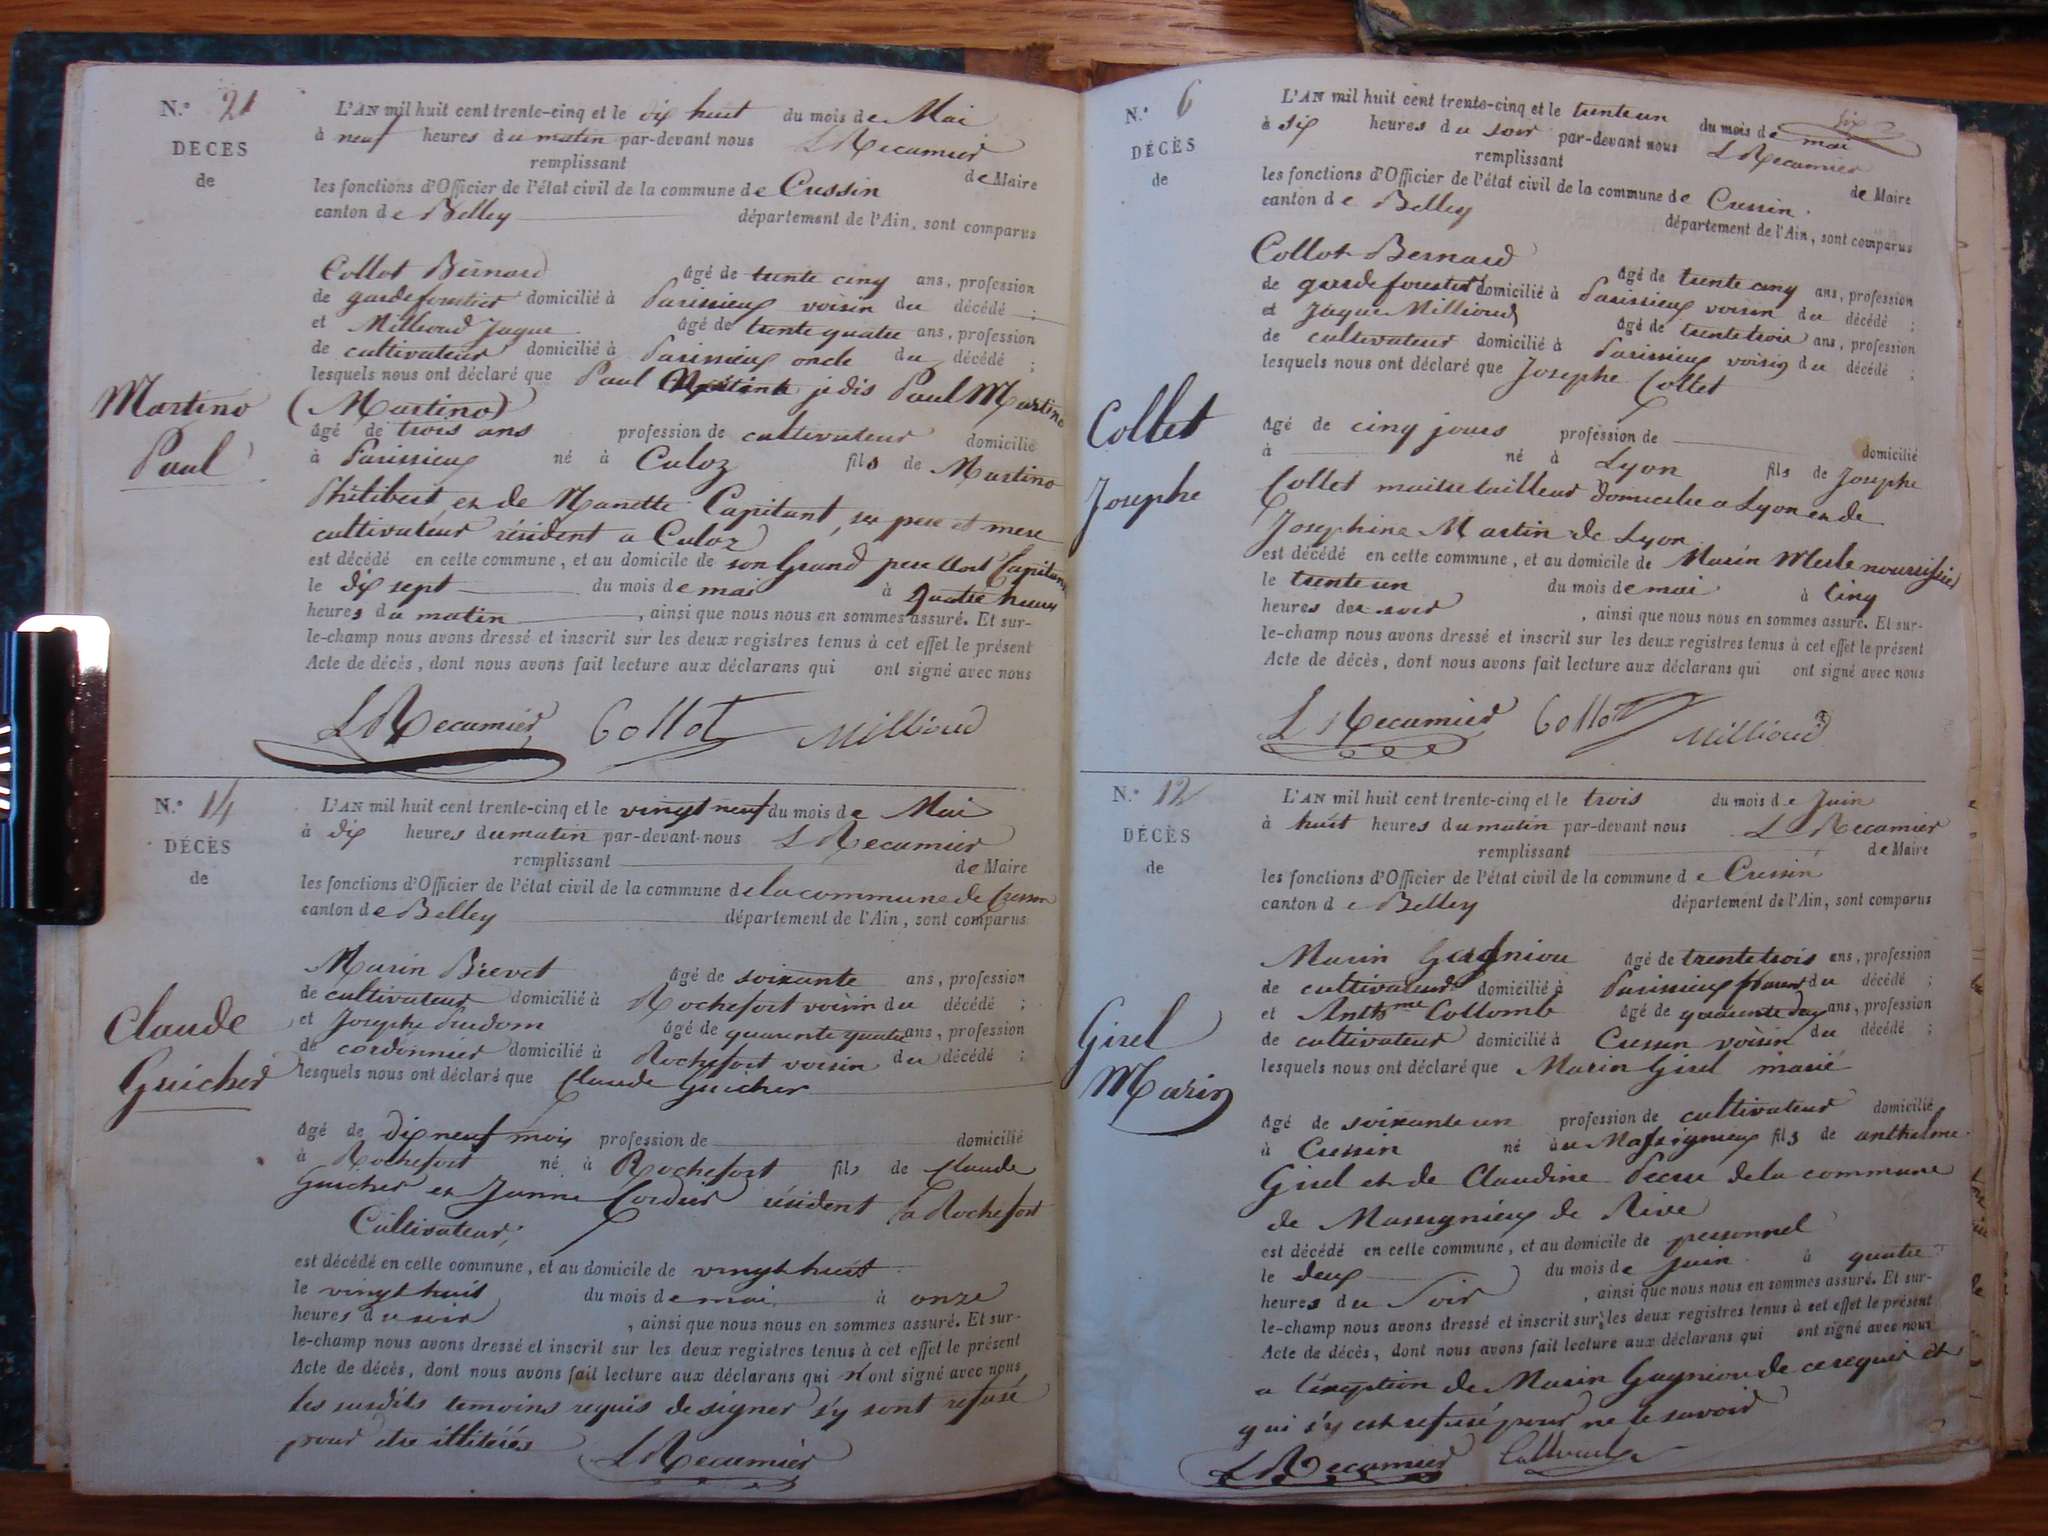 N.° 21
DÉCÈS
de
Martino
Paul
L'AN mil huit cent trente-cinq et le dix huit du mois de Mai
à neuf heures du matin par-devant nous L Recamier
remplissant de Maire
les fonctions d'Officier de l'état civil de la commune de Cressin
canton de Belley département de l'Ain, sont comparus
Collot Bernard âgé de trente cinq ans, profession
de garde forestier domicilié à Parissieux voisin du décédé ;
et Millioud Jaque âgé de trente quatre ans, profession
de cultivateur domicilié à Parissieux oncle du décédé ;
lesquels nous ont déclaré que Paul je dis Paul Martino
(Martino)
âgé de trois ans profession de cultivateur domicilié
à Parissieux né à Culoz fils de Martino
Philibert et de Manette Capitant, ses pere et mere
cultivateur résident a Culoz
est décédé en cette commune, et au domicile de son Grand pere Capitant
le dix sept du mois de mai à quatre heures
heures du matin, ainsi que nous nous en sommes assuré. Et sur-
le-champ nous avons dressé et inscrit sur les deux registres tenus à cet effet le présent
Acte de décès, dont nous avons fait lecture aux déclarans qui ont signé avec nous
L Recamier Collot Millioud
N.° 14
DÉCÈS
de
Claude
Guicher
L'AN mil huit cent trente-cinq et le vingt neuf du mois de Mai
à dix heures du matin par-devant-nous L Recamier
remplissant de Maire
les fonctions d'Officier de l'état civil de la commune de la commune de Cressin
canton de Belley département de l'Ain, sont comparus
Marin Brevet âgé de soixante ans, profession
de cultivateur domicilié à Rochefort voisin du décédé ;
et Josephe Prudom âgé de quarente quatre ans, profession
de cordonnier domicilié à Rochefort voisin du décédé ;
lesquels nous ont déclaré que Claude Guicher
âgé de dix neuf mois profession de domicilié
à Rochefort né à Rochefort fils de Claude
Guicher et Janne Cordier résident a Rochefort
Cultivateur,
est décédé en cette commune, et au domicile de vingt huit
le vingt huit du mois de mai à onze
heures du soir, ainsi que nous nous en sommes assuré. Et sur-
le-champ nous avons dressé et inscrit sur les deux registres tenus à cet effet le présent
Acte de décès, dont nous avons fait lecture aux déclarans qui n'ont signé avec nous
les susdits temoins requis de signer s'y sont refusé
pour etre illiterés L Recamier
six
N.° 6
DÉCÈS
de
Collet
Josephe
L'AN mil huit cent trente-cinq et le trente un du mois de mai
à six heures du soir par-devant nous L Recamier
remplissant de Maire
les fonctions d'Officier de l'état civil de la commune de Cressin.
canton de Belley département de l'Ain, sont comparus
Collot Bernard âgé de trente cinq ans, profession
de garde forestier domicilié à Parissieux voisin du décédé ;
et Jaque Millioud âgé de trente trois ans, profession
de cultivateur domicilié à Parissieux voisin du décédé ;
lesquels nous ont déclaré que Josephe Collet
âgé de cinq jours profession de domicilié
à né à Lyon fils de Josephe
Collet maitre tailleur domicilié a Lyon et de
Josephine Martin de Lyon
est décédé en cette commune, et au domicile de Marin Merle nourrissier
le trente un du mois de mai à cinq
heures de soir, ainsi que nous nous en sommes assuré. Et sur-
le-champ nous avons dressé et inscrit sur les deux registres tenus à cet effet le présent
Acte de décès, dont nous avons fait lecture aux déclarans qui ont signé avec nous
L Recamier Collot Millioud
N.° 12
DÉCÈS
de
Girel
Marin
L'AN mil huit cent trente-cinq et le trois du mois de Juin
à huit heures du matin par-devant nous L Recamier
remplissant de Maire
les fonctions d'Officier de l'état civil de la commune de Cressin
canton de Belley département de l'Ain, sont comparus
Marin Gagniou âgé de trente trois ans, profession
de cultivateur domicilié à Parissieux du décédé ;
et Anthme Collomb âgé de quarente ans, profession
de cultivateur domicilié à Cressin voisin du décédé ;
lesquels nous ont déclaré que Marin Girel marié
âgé de soixante un profession de cultivateur domicilié
à Cressin né à Massignieux fils de anthelme
Girel et de Claudine de la commune
de Massignieux de Rive
est décédé en cette commune, et au domicile de personnel
le deux du mois de juin à quatre
heures du soir, ainsi que nous nous en sommes assuré. Et sur-
le-champ nous avons dressé et inscrit sur les deux registres tenus à cet effet le présent
Acte de décès, dont nous avons fait lecture aux déclarans qui ont signé avec nous
a l'exeption de Marin Gagniou de ce requis et
qui s'y est refusé pour ne le savoir
L Recamier